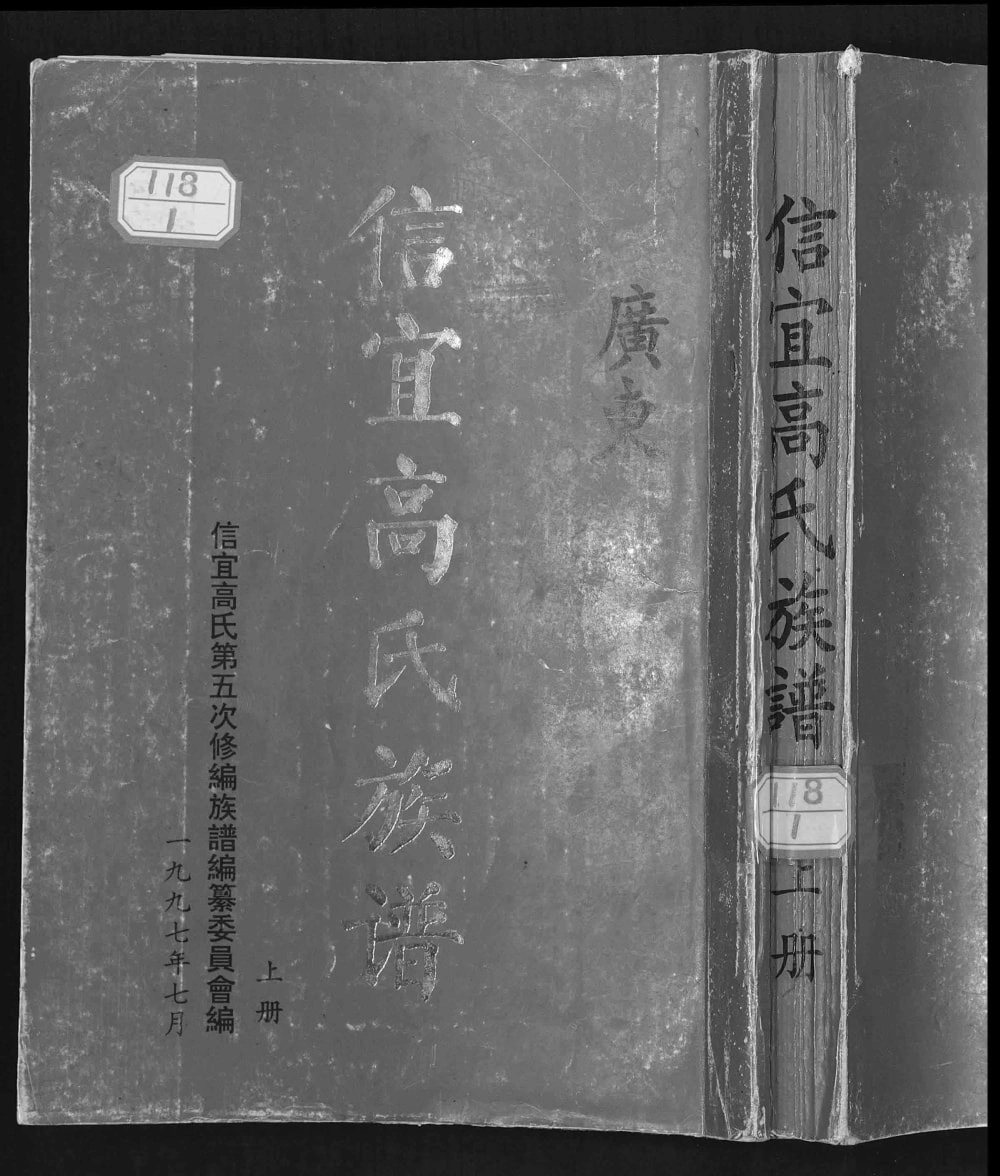 廣東
信宜高氏族譜
上册
信宜高氏第五次修編族譜編纂委員會編
一九九七年七月
118
1
信宜高氏族譜
118
1
上册